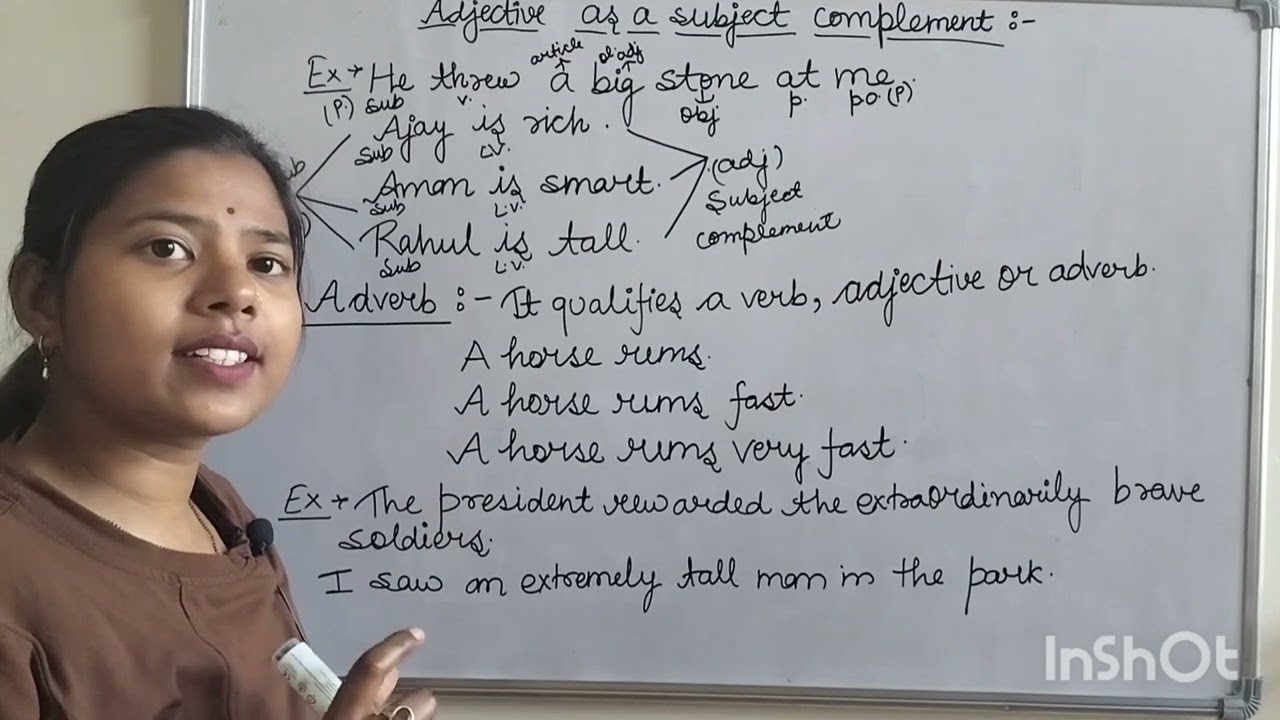 Adjective as a subject complement :-
article ol.adj
Ex → He threw a big stone at me.
(P.) Sub v. obj p. po. (P)
Ajay is rich.
Sub L.V.
(adj)
Aman is smart.
Sub L.V.
Subject
complement
Rahul is tall.
Sub L.V.
Adverb :- It qualifies a verb, adjective or adverb.
A horse runs.
A horse runs fast.
A horse runs very fast.
Ex → The president rewarded the extraordinarily brave
soldiers.
I saw an extremely tall man in the park.
InShOt